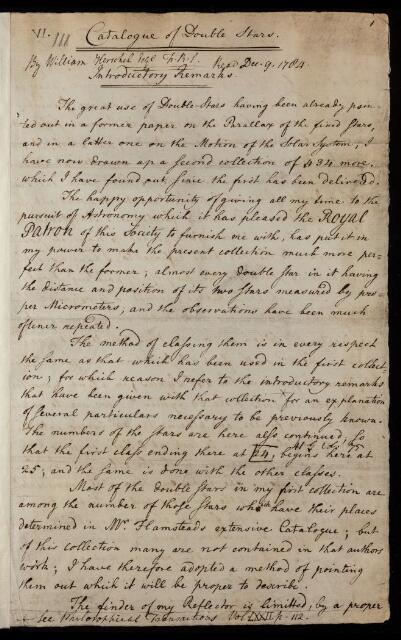 1
VI. III Catalogue of Double Stars.
By William Herschel Esqr F.R.S. Read Dec. 9. 1784
Introductory Remarks.
The great use of Double Stars having been already poin=
ted out in a former paper on the Parallax of the fixed Stars,
and in a latter one on the Motion of the Solar System; I
have now drawn up a second collection of 434 more,
which I have found out since the first has been delivered.
The happy opportunity of giving all my time to the
pursuit of Astronomy which it has pleased the Royal
Patron of this Society to furnish me with, has put it in
my power to make the present collection much more per=
fect than the former; almost every double star in it having
the distance and position of its two Stars measured by pro=
per Micrometers; and the observations have been much
oftener repeated.
The method of classing them is in every respect
the same as that which has been used in the first collect
ion; for which reason I refer to the introductory remarks
that have been given with that collection for an explanation
of several particulars necessary to be previously known.
The numbers of the Stars are here also continued, so
that the first class ending there at 24, begins here at
25; and the same is done with the other classes.
Most of the double stars in my first collection are
among the number of those Stars which have their places
determined in Mr. Flamsteads extensive Catalogue; but
of this collection many are not contained in that authors
work; I have therefore adopted a method of pointing
them out which it will be proper to describe.
The finder of my Reflector is limited, by a proper
See Philosophical Transactions Vol LXXII p. 112.